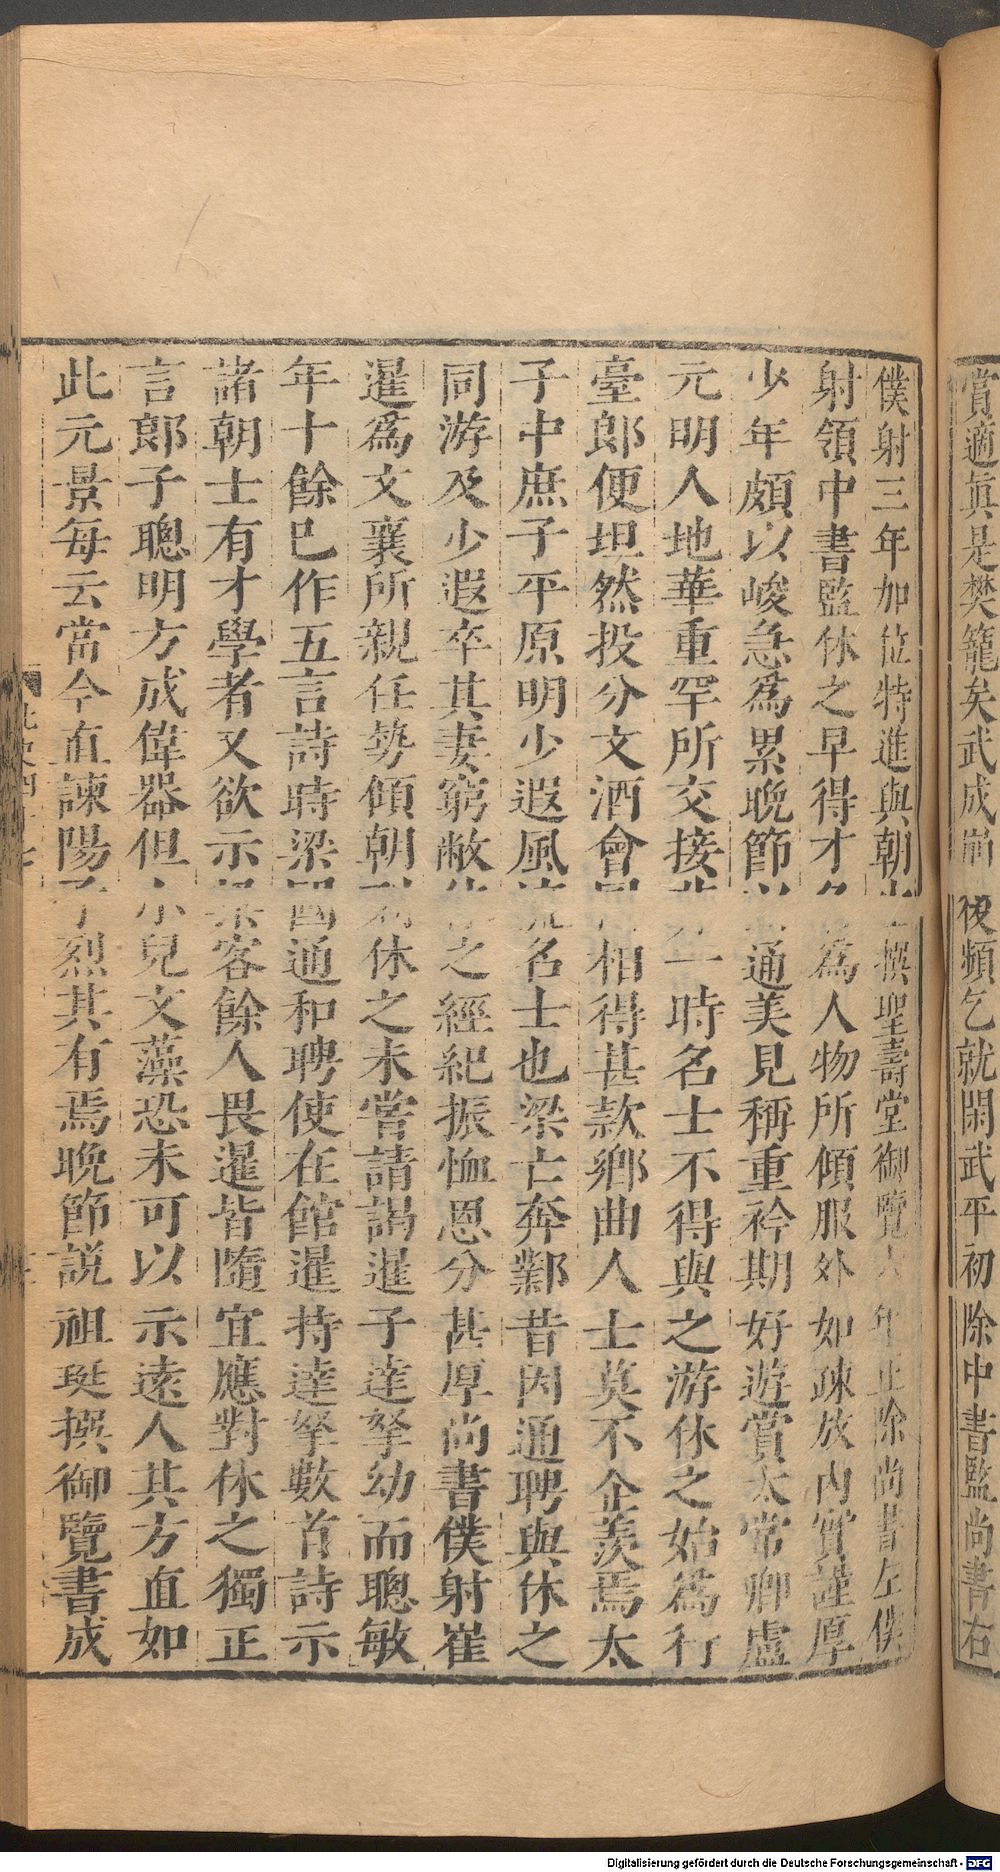 賞適眞是樊籠矣武成崩後頻乞就閑武平初除中書監尚書右
僕射三年加位特進與朝士撰聖壽堂御覽六年正除尚書左僕
射領中書監休之早得才名爲人物所傾服外如疎放內實謹厚
少年頗以峻急爲累晚節以通美見稱重衿期好遊賞太常卿盧
元明人地華重罕所交接非一時名士不得與之游休之始爲行
臺郎便坦然投分文酒會同相得甚款鄉曲人士莫不企羨焉太
子中庶子平原明少遐風流名士也梁亡奔鄴昔因通聘與休之
同游及少遐卒其妻窮敝休之經紀振恤恩分甚厚尚書僕射崔
暹爲文襄所親任勢傾朝列休之未嘗請謁暹子達拏幼而聰敏
年十餘巳作五言詩時梁國通和聘使在館暹持達拏數首詩示
諸朝士有才學者又欲示梁客餘人畏暹皆隨宜應對休之獨正
言郎子聰明方成偉器但小兒文藻恐未可以示遠人其方直如
此元景每云當今直諫陽子烈其有焉晚節説祖珽撰御覽書成